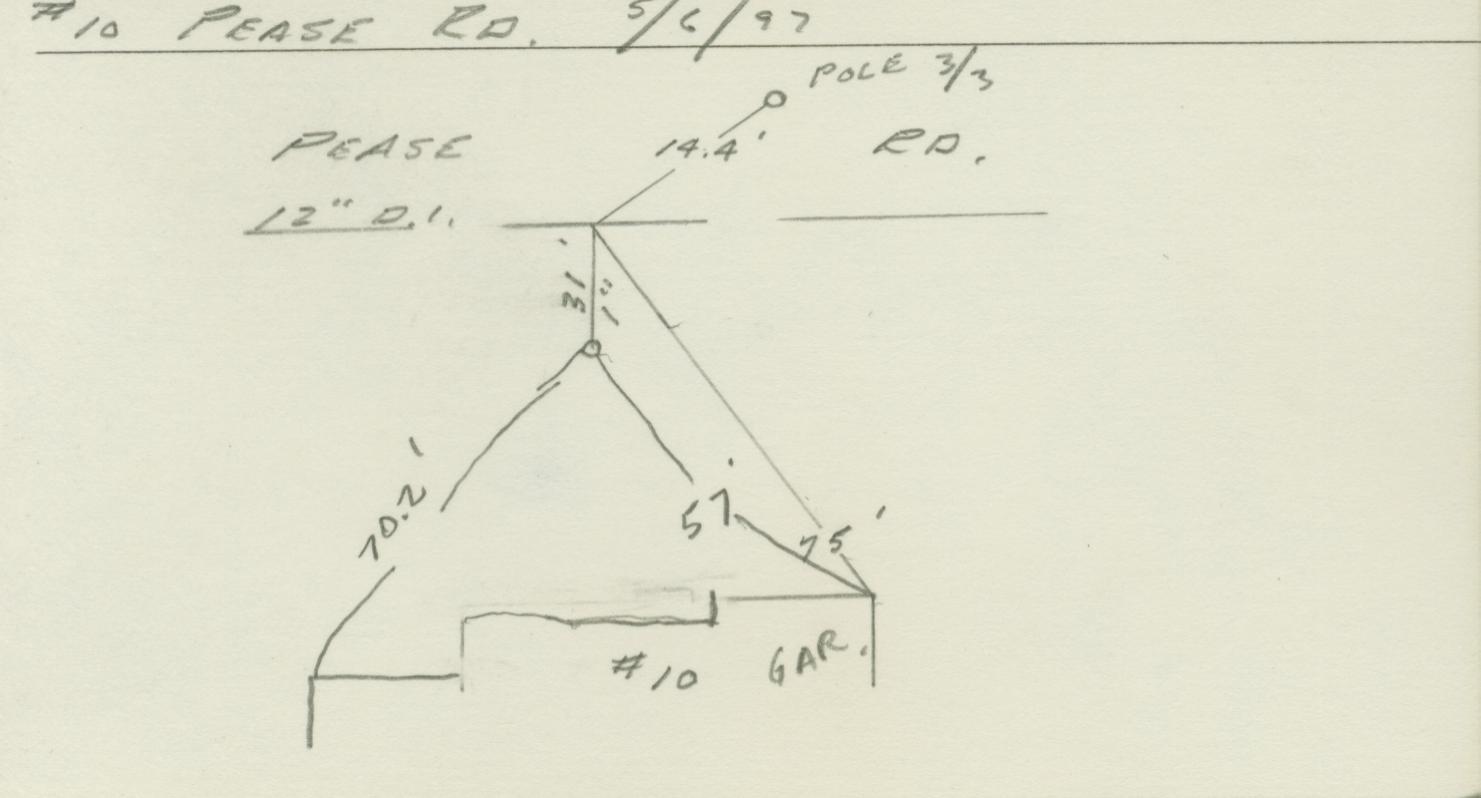 #10 PEASE RD. 5/6/97
POLE 3/3
PEASE 14.4' RD.
12" D.I.
31'
1"
70.2'
57'
75'
#10 GAR.